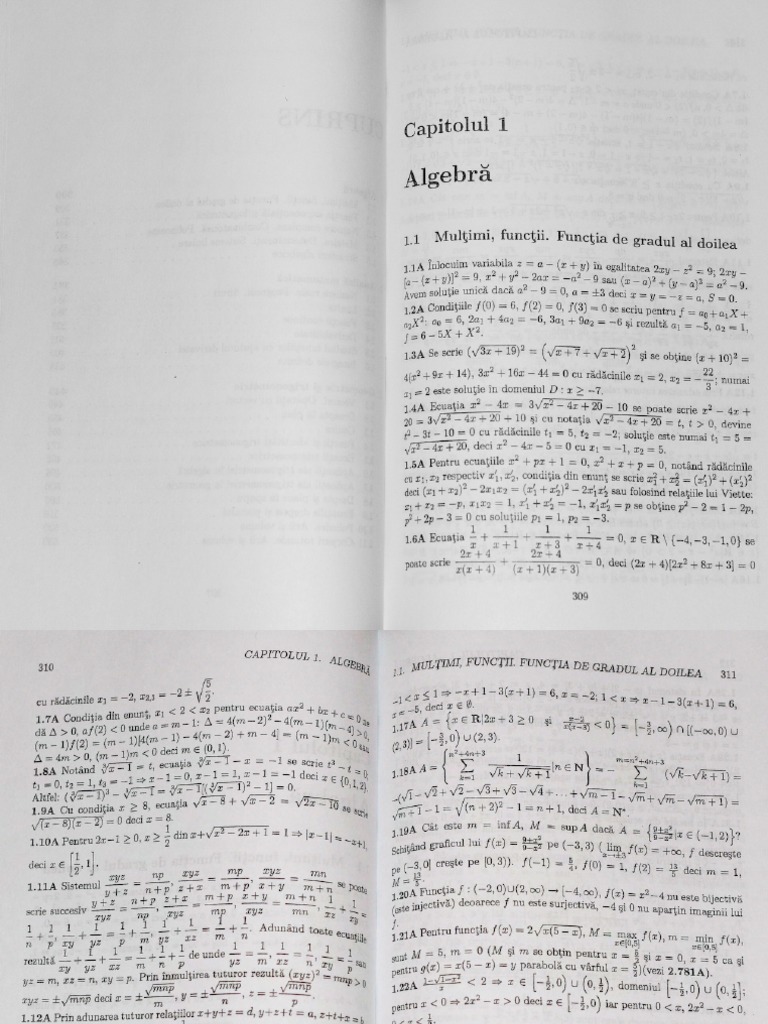 Capitolul 1
Algebră
1.1 Mulţimi, funcţii. Funcţia de gradul al doilea
1.1A Înlocuim variabila z = a − (x + y) în egalitatea 2xy − z² = 9; 2xy −
[a − (x + y)]² = 9, x² + y² − 2ax = −a² − 9 sau (x − a)² + (y − a)² = a² − 9.
Avem soluţie unică dacă a² − 9 = 0, a = ±3 deci x = y = −z = a, S = 0.
1.2A Condiţiile f(0) = 6, f(2) = 0, f(3) = 0 se scriu pentru f = a₀ + a₁X +
a₂X²: a₀ = 6, 2a₁ + 4a₂ = −6, 3a₁ + 9a₂ = −6 şi rezultă a₁ = −5, a₂ = 1,
f = 6 − 5X + X².
1.3A Se scrie (√(3x + 19))² = (√(x + 7) + √(x + 2))² şi se obţine (x + 10)² =
4(x² + 9x + 14), 3x² + 16x − 44 = 0 cu rădăcinile x₁ = 2, x₂ = −22/3; numai
x₁ = 2 este soluţie în domeniul D : x ≥ −7.
1.4A Ecuaţia x² − 4x = 3√(x² − 4x + 20) − 10 se poate scrie x² − 4x +
20 = 3√(x² − 4x + 20) + 10 şi cu notaţia √(x² − 4x + 20) = t, t > 0, devine
t² − 3t − 10 = 0 cu rădăcinile t₁ = 5, t₂ = −2; soluţie este numai t₁ = 5 =
√(x² − 4x + 20), deci x² − 4x − 5 = 0 cu x₁ = −1, x₂ = 5.
1.5A Pentru ecuaţiile x² + px + 1 = 0, x² + x + p = 0, notând rădăcinile
cu x₁, x₂ respectiv x₁′, x₂′, condiţia din enunţ se scrie x₁² + x₂² = (x₁′)² + (x₂′)²
deci (x₁ + x₂)² − 2x₁x₂ = (x₁′ + x₂′)² − 2x₁′x₂′ sau folosind relaţiile lui Viette:
x₁ + x₂ = −p, x₁x₂ = 1, x₁′ + x₂′ = −1, x₁′x₂′ = p se obţine p² − 2 = 1 − 2p,
p² + 2p − 3 = 0 cu soluţiile p₁ = 1, p₂ = −3.
1.6A Ecuaţia 1/x + 1/(x + 1) + 1/(x + 3) + 1/(x + 4) = 0, x ∈ R \ {−4, −3, −1, 0} se
poate scrie (2x + 4)/(x(x + 4)) + (2x + 4)/((x + 1)(x + 3)) = 0, deci (2x + 4)[2x² + 8x + 3] = 0
309
310 CAPITOLUL 1. ALGEBRĂ
cu rădăcinile x₁ = −2, x₂,₃ = −2 ± √(5/2).
1.7A Condiţia din enunţ, x₁ < 2 < x₂ pentru ecuaţia ax² + bx + c = 0 se
dă Δ > 0, af(2) < 0 unde a = m − 1: Δ = 4(m − 2)² − 4(m − 1)(m − 4) > 0,
(m − 1)f(2) = (m − 1)[4(m − 1) − 4(m − 2) + m − 4] = (m − 1)m < 0 sau
Δ = 4m > 0, (m − 1)m < 0 deci m ∈ (0, 1).
1.8A Notând ∛(x − 1) = t, ecuaţia ∛(x − 1) − x = −1 se scrie t³ − t = 0,
t₁ = 0, t₂ = 1, t₃ = −1 ⇒ x − 1 = 0, x − 1 = 1, x − 1 = −1 deci x ∈ {0, 1, 2}.
Altfel: (∛(x − 1))³ − ∛(x − 1) = ∛(x − 1)[(∛(x − 1))² − 1] = 0.
1.9A Cu condiţia x ≥ 8, ecuaţia √(x − 8) + √(x − 2) = √(2x − 10) se scrie
√((x − 8)(x − 2)) = 0 deci x = 8.
1.10A Pentru 2x − 1 ≥ 0, x ≥ 1/2 din x + √(x² − 2x + 1) = 1 ⇒ |x − 1| = −x + 1,
deci x ∈ [1/2, 1].
1.11A Sistemul xyz/(y + z) = np/(n + p), xyz/(z + x) = mp/(m + p), xyz/(x + y) = mn/(m + n) se poate
scrie succesiv (y + z)/xyz = (n + p)/np, (z + x)/xyz = (m + p)/mp, (x + y)/xyz = (m + n)/mn, 1/xz + 1/xy =
1/n + 1/p, 1/xy + 1/yz = 1/p + 1/m, 1/yz + 1/xz = 1/m + 1/n. Adunând toate ecuaţiile
rezultă 1/xy + 1/yz + 1/xz = 1/m + 1/n + 1/p de unde 1/yz = 1/m, 1/xz = 1/n, 1/xy = 1/p sau
yz = m, xz = n, xy = p. Prin înmulţirea tuturor rezultă (xyz)² = mnp > 0
xyz = ±√mnp deci x = ±√mnp/m, y = ±√mnp/n, z = ±√mnp/p.
1.12A Prin adunarea tuturor relaţiilor x+y+z = d, y+z+t = a, z+t+x = b
1.1. MULŢIMI, FUNCŢII. FUNCŢIA DE GRADUL AL DOILEA 311
−1 < x ≤ 1 ⇒ −x + 1 − 3(x + 1) = 6, x = −2; 1 < x ⇒ x − 1 − 3(x + 1) = 6,
x = −5, deci x ∈ ∅.
1.17A A = {x ∈ R|2x + 3 ≥ 0 şi < 0} = [−3/2, ∞) ∩ [(−∞, 0) ∪
(2, 3)] = [−3/2, 0) ∪ (2, 3).
1.18A A = {∑ₖ₌₁^(n²+4n+3) 1/(√k + √(k + 1)) |n ∈ N} = − ∑ₖ₌₁^(m=n²+4n+3) (√k − √(k + 1)) =
−(√1 − √2 + √2 − √3 + √3 − √4 + ... + √(m − 1) − √m + √m − √(m + 1)) =
√(m + 1) − 1 = √((n + 2)²) − 1 = n + 1, deci A = N*.
1.19A Cât este m = inf A, M = sup A dacă A = {(9+x²)/(9−x²) |x ∈ (−1, 2)}?
Schiţând graficul lui f(x) = (9+x²)/(9−x²) pe (−3, 3) (lim f(x) = +∞, f descreşte
pe (−3, 0] creşte pe [0, 3)). f(−1) = 5/4, f(0) = 1, f(2) = 13/5 deci m = 1,
M = 13/5.
1.20A Funcţia f : (−2, 0)∪(2, ∞) → [−4, ∞), f(x) = x²−4 nu este bijectivă
(este injectivă) deoarece f nu este surjectivă, −4 şi 0 nu aparţin imaginii lui
f.
1.21A Pentru funcţia f(x) = 2√(x(5 − x)), M = max x∈[0,5] f(x), m = min x∈[0,5] f(x),
sunt M = 5, m = 0 (M şi m se obţin pentru x = 5/2 şi x = 0, x = 5 ca şi
pentru g(x) = x(5 − x) = y parabolă cu vârful x = 5/2)(vezi 2.781A).
1.22A < 2 ⇒ x ∈ [−1/2, 0), domeniul [−1/2, 0) ∪ (0, 1/2],
pentru x < 0 ⇒ 2x² − x > 0 deci x ∈ [−1/2, 0) iar pentru 0 < x, 2x² − x < 0,